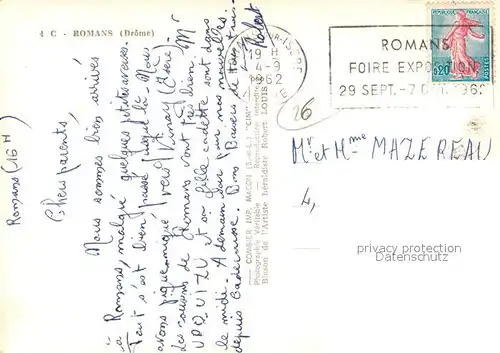 4 C - ROMANS (Drôme)
Romans (16 H)
Chers parents,
Nous sommes bien arrivés
à Romans, malgré quelques petites averses.
Tout s'est bien passé jusque là. Nous
avons pique-niqué vers Vinay (Isère)
Les cousins de Romans vont très bien. Mr
URQUIZU et sa fille cadette sont dans
le midi. A demain pour nos nouvelles
depuis Baudinise. Bons Baisers de tous trois
Robert
COMBIER IMP. MACON (S.-&-L.) "CIM"
Photographie Véritable - Reproduction interdite
Blason de l'Artiste héraldiste Robert LOUIS
ROMANS-SUR-ISERE
19 H
4-9
1962
DROME
ROMANS
FOIRE EXPOSITION
29 SEPT. - 7 OCT. 1962
REPUBLIQUE FRANÇAISE
0,20
POSTES
26
Mr et Mme MAZEREAU
4,
privacy protection
Datenschutz